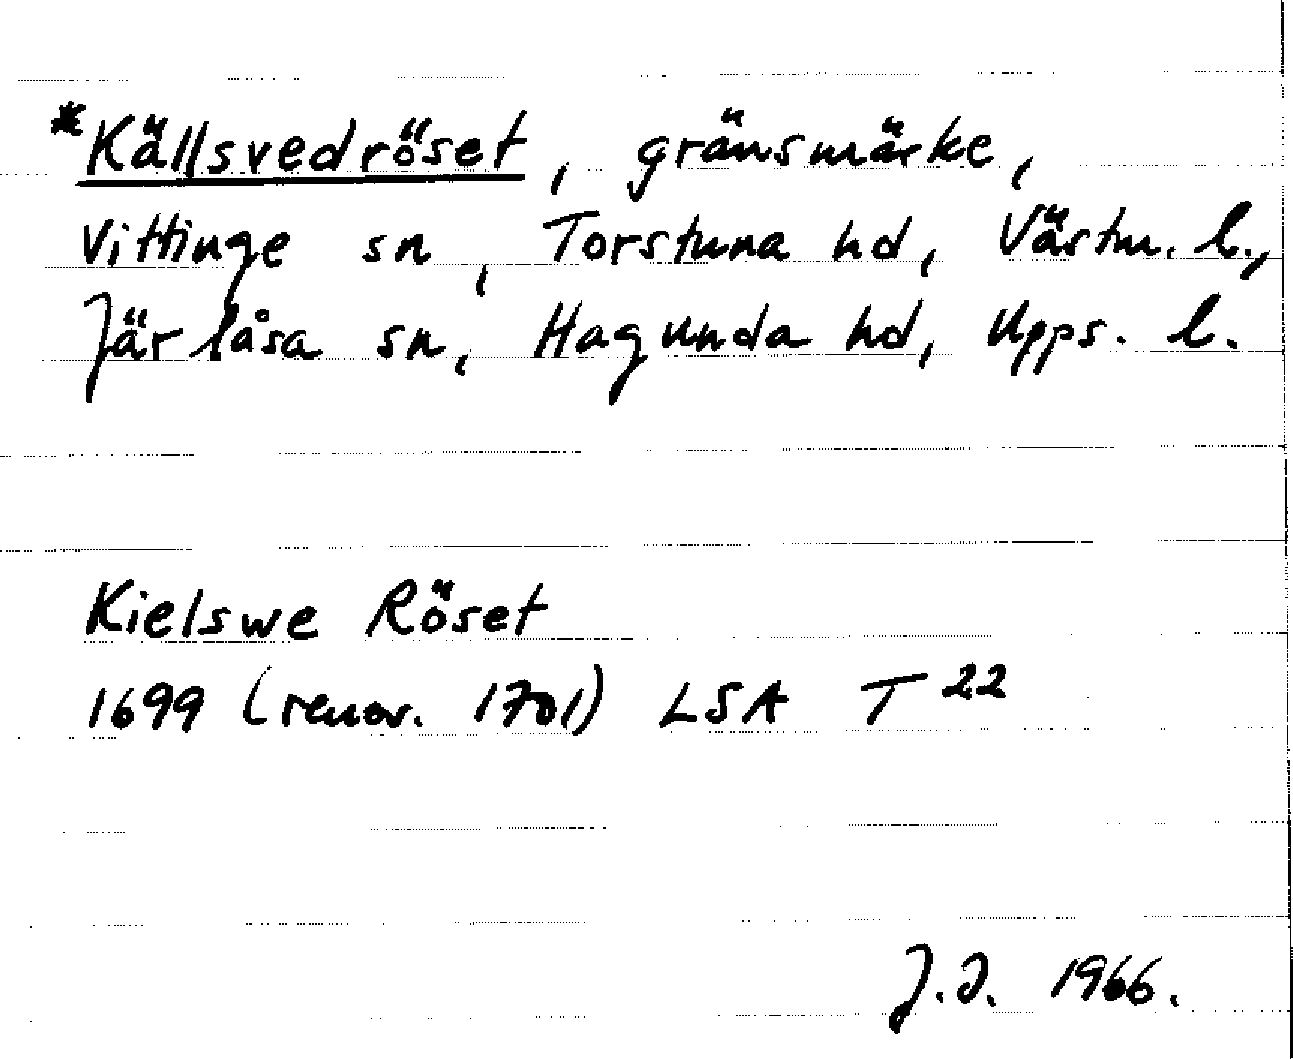 *Källsvedröset, gränsmärke,
Vittinge sn, Torstuna hd, Västm. l.,
Järlåsa sn, Hagunda hd, Upps. l.
Kielswe Röset
1699 (renov. 1701) LSA T 22
J.J. 1966.